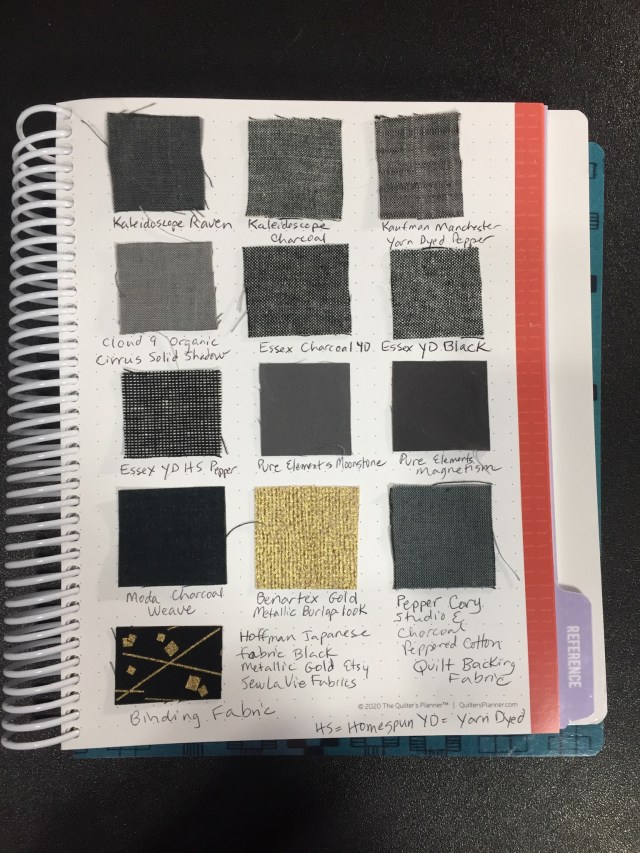 Kaleidoscope Raven
Kaleidoscope
Charcoal
Kaufman Manchester
Yarn Dyed Pepper
Cloud 9 Organic
Cirrus Solid Shadow
Essex Charcoal YD
Essex YD Black
Essex YD HS Pepper
Pure Elements Moonstone
Pure Elements
Magnetism
Moda Charcoal
Weave
Benartex Gold
Metallic Burlap look
Pepper Cory
Studio E
Charcoal
Peppered Cotton
Quilt Backing
Fabric
Hoffman Japanese
fabric Black
Metallic Gold Etsy
Sew La Vie Fabrics
Binding Fabric
© 2020 The Quilter's Planner™ | QuiltersPlanner.com
HS = Homespun YD = Yarn Dyed
REFERENCE